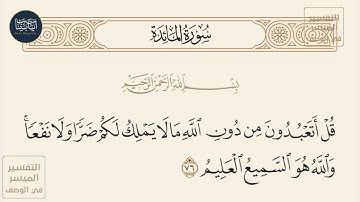 سُورَةُ المَائِدَة
بِسْمِ اللَّهِ الرَّحْمَٰنِ الرَّحِيمِ
قُلْ أَتَعْبُدُونَ مِن دُونِ اللَّهِ مَا لَا يَمْلِكُ لَكُمْ ضَرًّا وَلَا نَفْعًا ۚ
وَاللَّهُ هُوَ السَّمِيعُ الْعَلِيمُ ٧٦
التفسير
الميسر
في الوصف
التفسير
الميسر
في الوصف